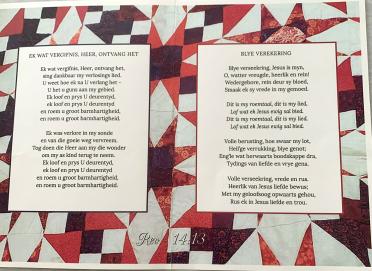 EK WAT VERGIFNIS, HEER, ONTVANG HET
Ek wat vergifnis, Heer, ontvang het,
sing dankbaar my verlosings lied.
U weet hoe ek na U verlang het -
U het u guns aan my gebied.
Ek loof en prys U deurentyd,
ek loof en prys U deurentyd,
en roem u groot barmhartigheid,
en roem u groot barmhartigheid.
Ek was verlore in my sonde
en van die goeie weg vervreem.
Tog doen die Heer aan my die wonder
om my as kind terug te neem.
Ek loof en prys U deurentyd,
ek loof en prys U deurentyd,
en roem u groot barmhartigheid,
en roem u groot barmhartigheid.
BLYE VERSEKERING
Blye versekering, Jesus is myn,
O, watter vreugde, heerlik en rein!
Wedergebore, rein deur sy bloed,
Smaak ek sy vrede in my gemoed.
Dit is my roemtaal, dit is my lied,
Lof wat ek Jesus ewig sal bied.
Dit is my roemtaal, dit is my lied.
Lof wat ek Jesus ewig sal bied.
Volle berusting, hoe swaar my lot,
Heil'ge verrukking, blye genot;
Eng'le wat herwaarts boodskappe dra,
Tydings van liefde en vrye gena.
Volle versekering, vrede en rus.
Heerlik van Jesus liefde bewus;
Met my geloofsoog opwaarts gehou,
Rus ek in Jesus liefde en trou.
14:13